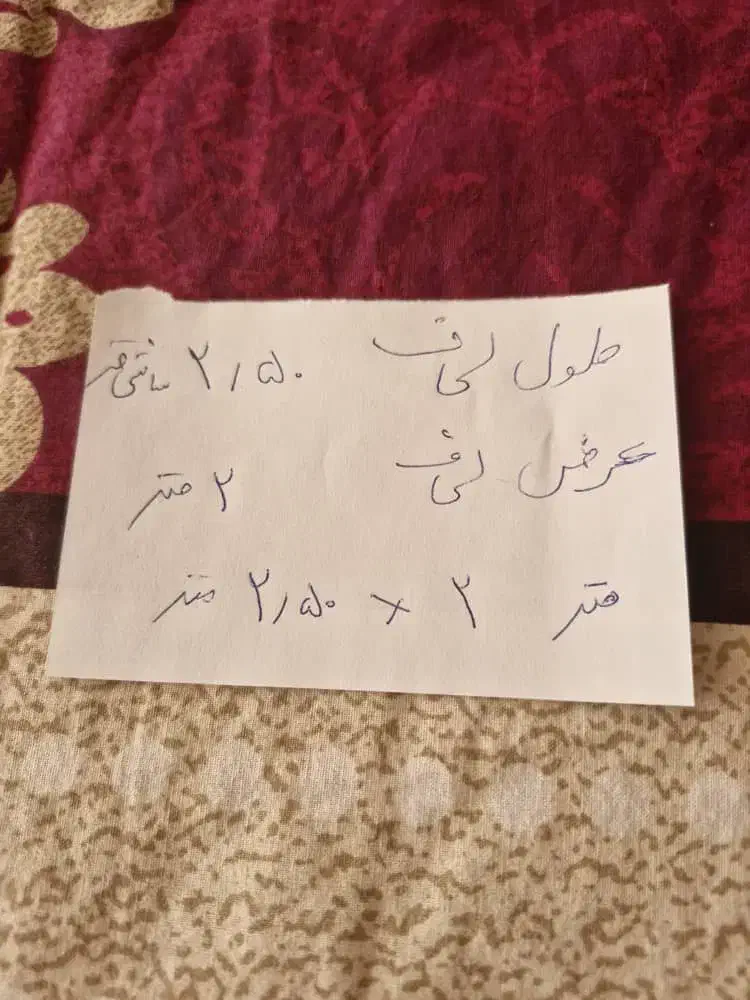 طول لحاف ۲٫۵۰ سانتی متر
عرض لحاف ۲ متر
متر ۲ × ۲٫۵۰ متر